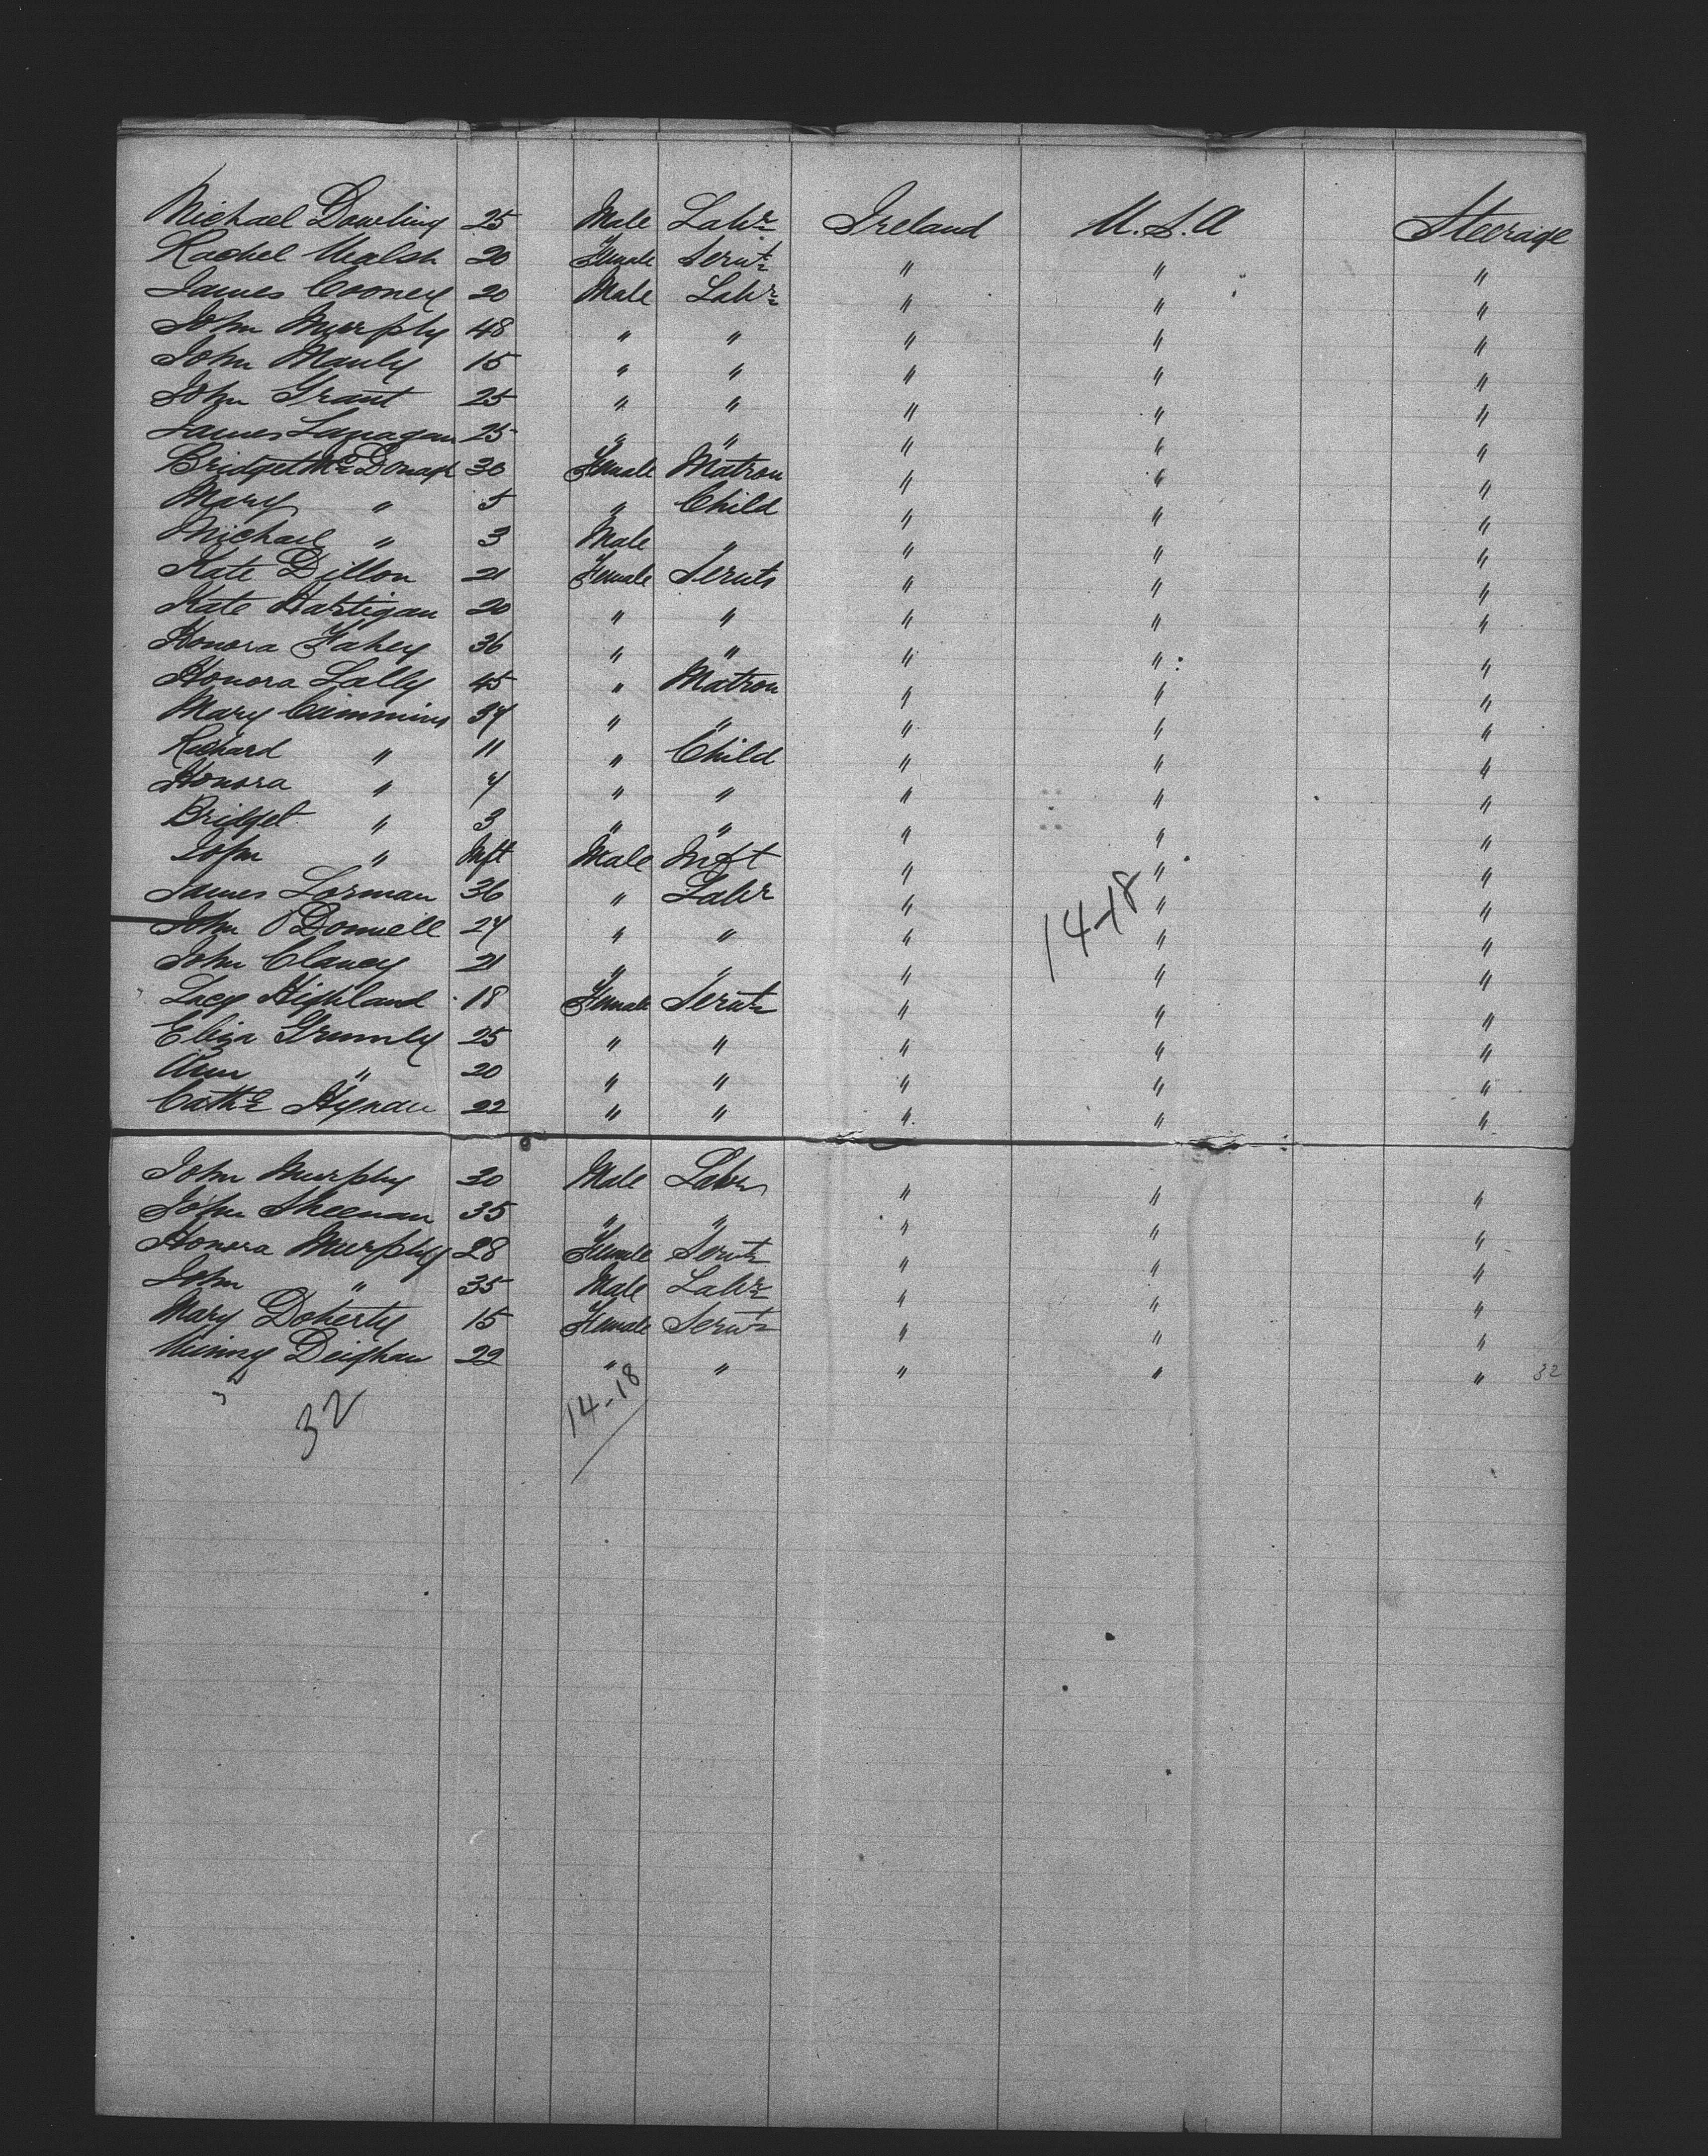 Michael Dowling 25 Male Labr Ireland U.S.A Steerage
Rachel Walsh 20 Female Servt " " "
James Cooney 20 Male Labr " " "
John Murphy 48 " " " " "
John Manly 15 " " " " "
John Grant 25 " " " " "
James Lanagan 25 " " " " "
Bridget McDonagh 30 Female Matron " " "
Mary " 5 " Child " " "
Michael " 3 Male " " " "
Kate Dillon 21 Female Servts " " "
Kate Hartigan 20 " " " " "
Honora Fahey 36 " " " " "
Honora Lally 45 " Matron " " "
Mary Cummins 34 " " " " "
Richard " 11 " Child " " "
Honora " 4 " " " " "
Bridget " 3 " " " " "
John " Inft Male Inft " " "
James Lorman 36 " Labr " " "
John O'Donnell 24 " " " 14-18 " "
John Clancy 21 " " " " "
Lacy Highland 18 Female Servt " " "
Eliza Grumly 25 " " " " "
Ann " 20 " " " " "
Cathe Hynan 22 " " " " "
John Murphy 30 Male Labr " " "
John Sheenan 35 " " " " "
Honora Murphy 28 Female Servt " " "
John " 35 Male Labr " " "
Mary Doherty 15 Female Servt " " "
Winny Deighan 22 " " " " " 32
32 14-18